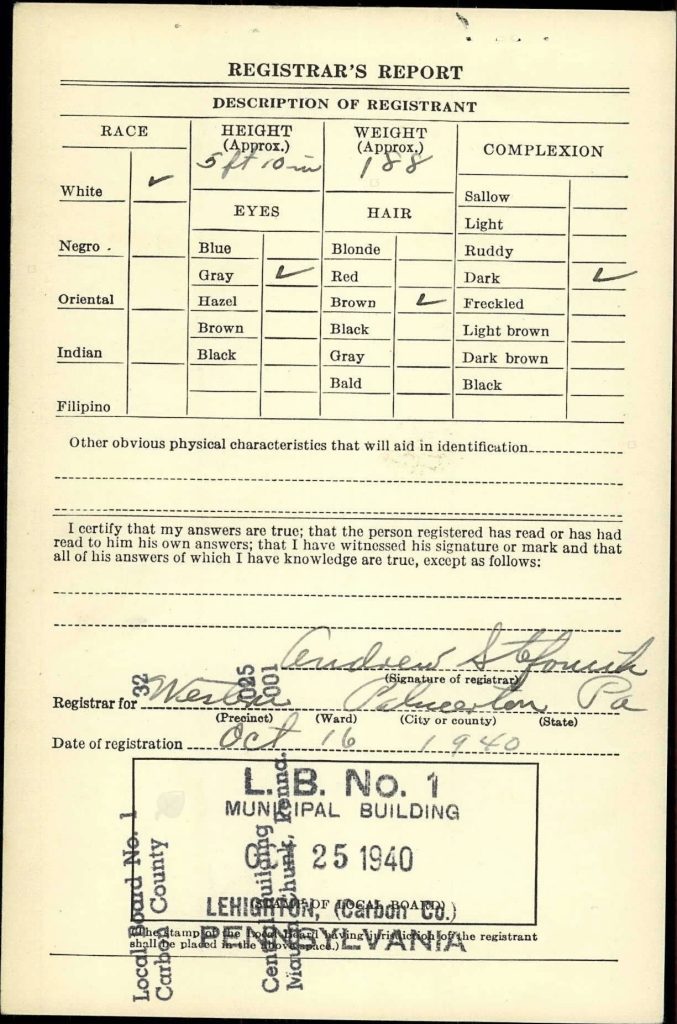 REGISTRAR'S REPORT
DESCRIPTION OF REGISTRANT
RACE
White ✓
Negro .
Oriental
Indian
Filipino
HEIGHT
(Approx.)
5 ft 10 in
WEIGHT
(Approx.)
188
EYES
Blue
Gray ✓
Hazel
Brown
Black
HAIR
Blonde
Red
Brown ✓
Black
Gray
Bald
COMPLEXION
Sallow
Light
Ruddy
Dark ✓
Freckled
Light brown
Dark brown
Black
Other obvious physical characteristics that will aid in identification
I certify that my answers are true; that the person registered has read or has had
read to him his own answers; that I have witnessed his signature or mark and that
all of his answers of which I have knowledge are true, except as follows:
Andrew
(Signature of registrar)
32
025
001
Registrar for Western Palmerton Pa
(Precinct) (Ward) (City or county) (State)
Date of registration Oct 16 1940
L. B. No. 1
MUNICIPAL BUILDING
25 1940
(STAMP OF LOCAL BOARD)
LEHIGHTON, (Carbon Co.)
PENNSYLVANIA
(The stamp of the Local Board having jurisdiction of the registrant
shall be placed in the above space.)
Local Board No. 1
Carbon County
Central Building
Mauch Chunk, Penna.